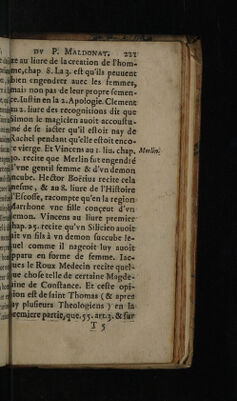 DV P. MALDONAT. 221
re au liure de la creation de l'hom-
me, chap. 8. La 3. est qu'ils peuuent
bien engendrer auec les femmes,
mais non pas de leur propre semen-
ce. Iustin en la 2. Apologie. Clement
au 2. liure des recognitions dit que
Simon le magicien auoit accoustu-
mé de se iacter qu'il estoit nay de
Rachel pendant qu'elle estoit enco-
re vierge. Et Vincens au 1. liu. chap.
Merlin.
30. recite que Merlin fut engendré
d'vne gentil femme & d'vn demon
incube. Hector Boërius recite cela
mesme, & au 8. liure de l'Histoire
d'Escosse, racompte qu'en la region
Marrhone vne fille conçeut d'vn
demon. Vincens au liure premier
chap. 25. recite qu'vn Silicien auoit
eu vn fils à vn demon succube le-
quel comme il nageoit luy auoit
apparu en forme de femme. Iac-
ques le Roux Medecin recite quel-
que chose telle de certaine Magde-
laine de Constance. Et ceste opi-
nion est de saint Thomas (& apres
luy plusieurs Theologiens) en la
premiere partie, que. 55. art. 3. & sur
T 5